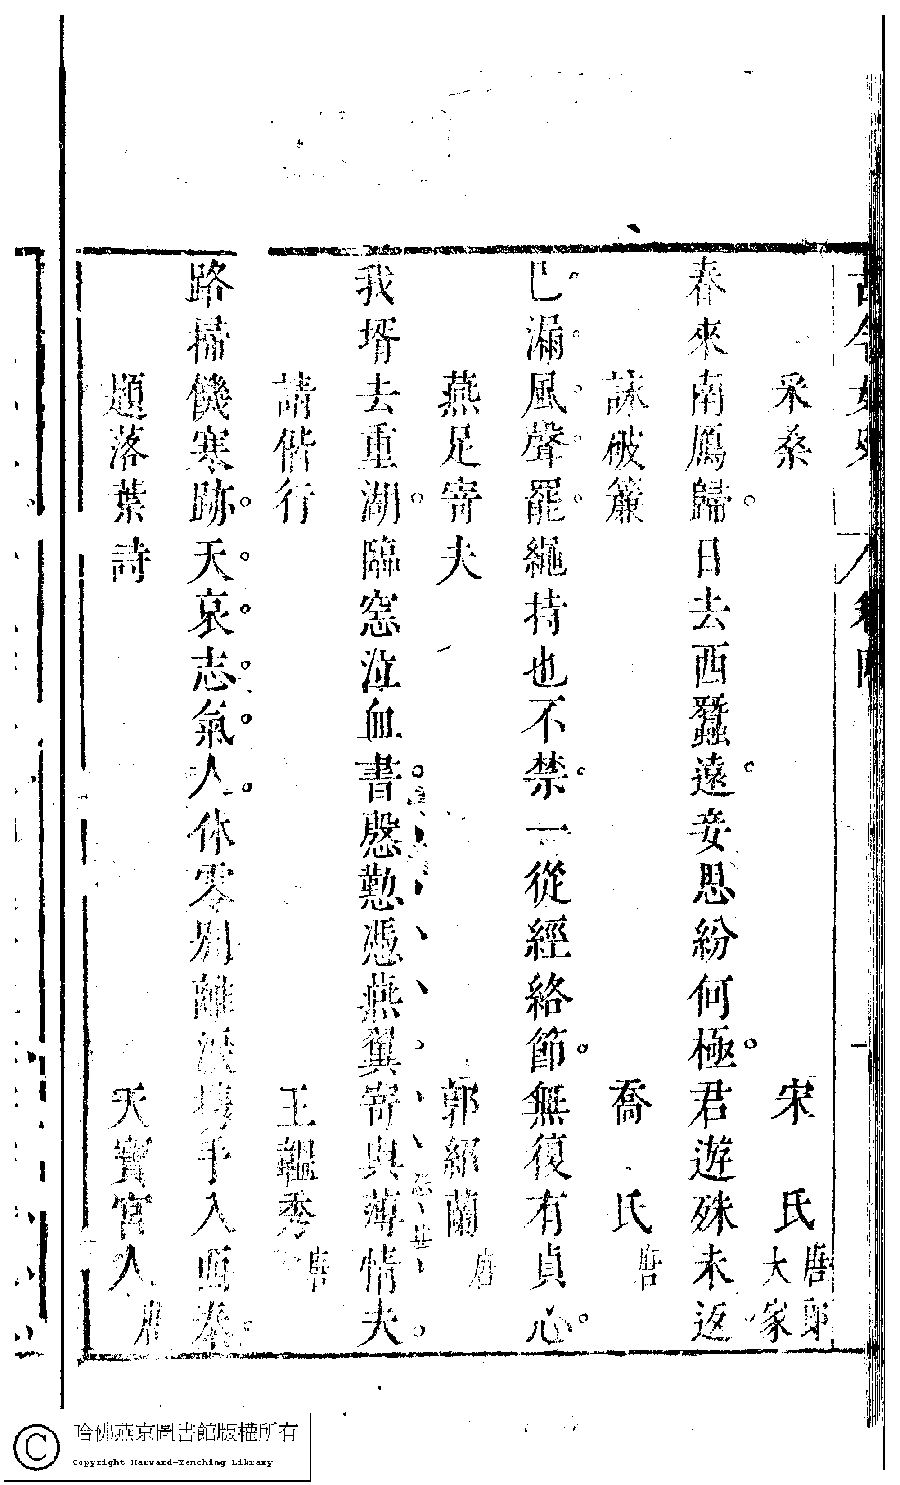 古今女史 卷四
采桑 宋氏 唐郎大家
春來南鴈歸。日去西蠶遠。妾思紛何極。君遊殊未返。
詠破簾 喬氏 唐
已漏風聲罷。繩持也不禁。一從經絡節。無復有貞心。
燕足寄夫 郭紹蘭 唐
我壻去重湖。臨窓泣血書。慇懃憑燕翼寄與薄情夫。
請偕行 王韞秀 唐
路掃饑寒跡。天哀志氣人。休零別離淚携手入西秦。
題落葉詩 天寶宮人 唐
哈佛燕京圖書館版權所有
Copyright Harvard-Yenching Library